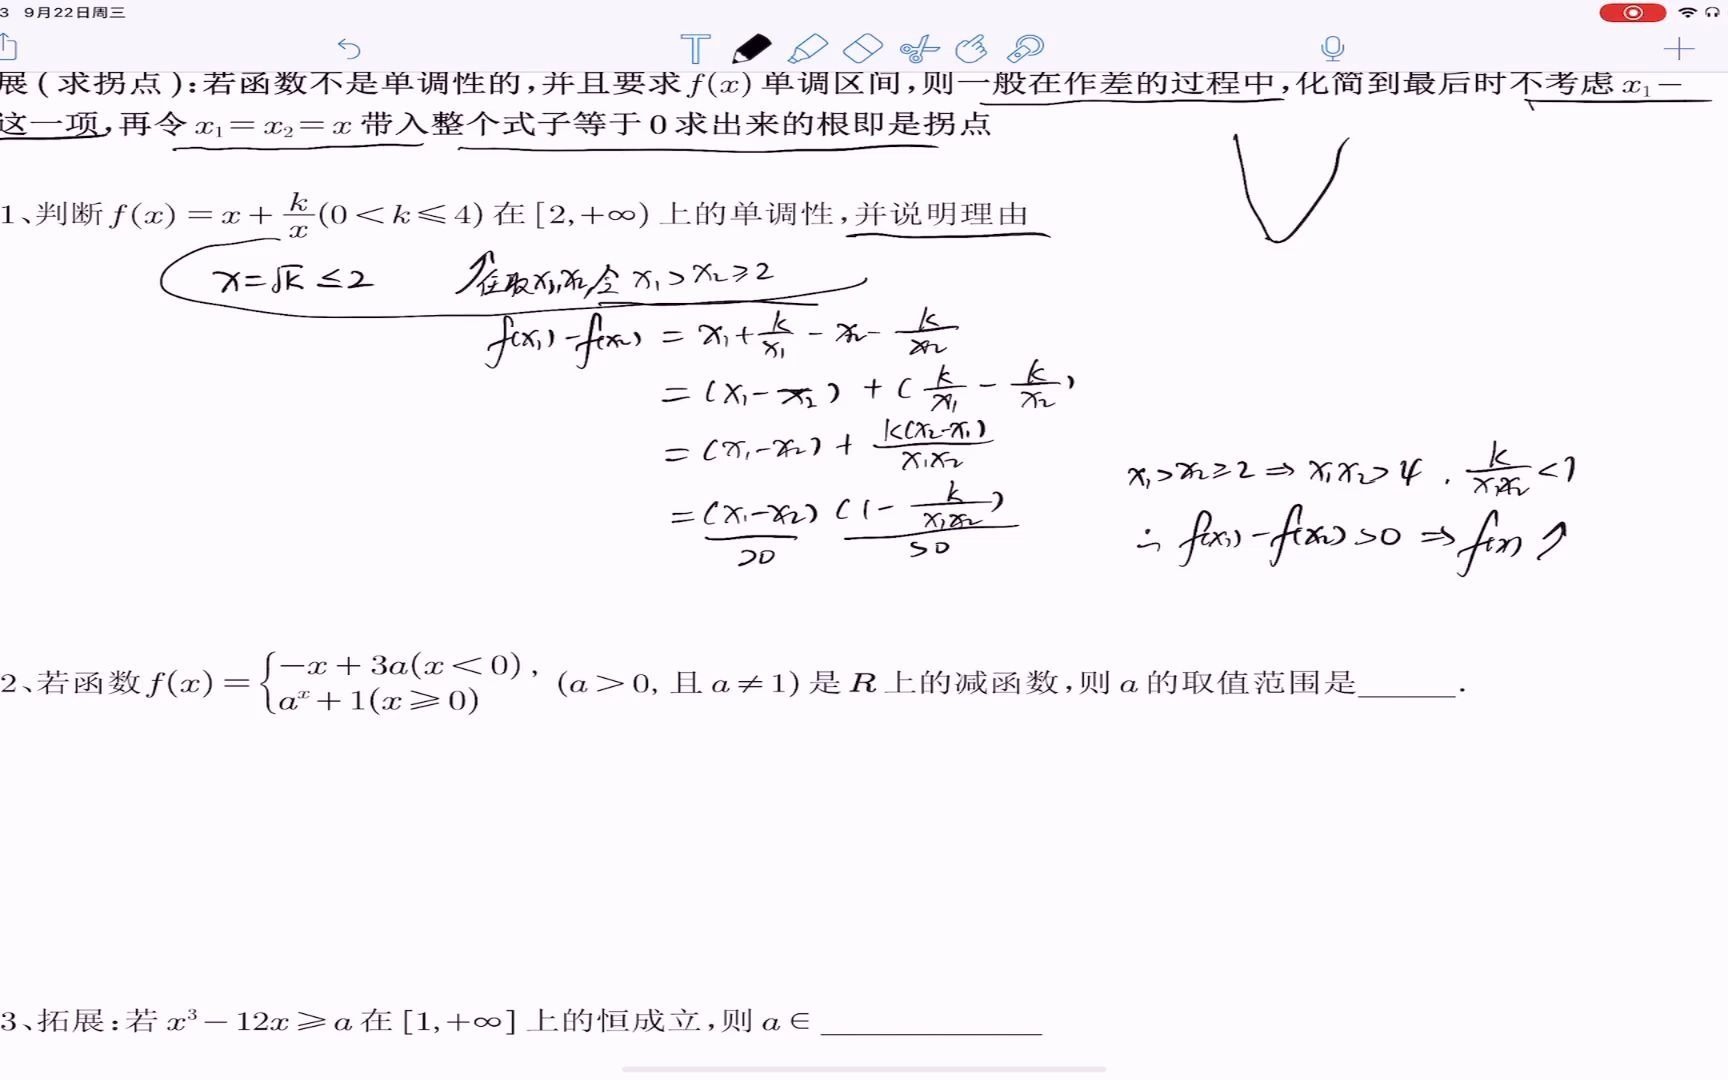 3 9月22日周三
T
展(求拐点):若函数不是单调性的,并且要求f(x)单调区间,则一般在作差的过程中,化简到最后时不考虑x₁−
这一项,再令x₁=x₂=x带入整个式子等于0求出来的根即是拐点
1、判断f(x)=x+k/x(0<k≤4)在[2,+∞)上的单调性,并说明理由
x=√k≤2 ↑任取x₁,x₂,令x₁>x₂≥2
f(x₁)-f(x₂)=x₁+k/x₁-x₂-k/x₂
=(x₁-x₂)+(k/x₁-k/x₂)
=(x₁-x₂)+k(x₂-x₁)/x₁x₂
=(x₁-x₂)(1-k/x₁x₂)
>0 >0
x₁>x₂≥2⇒x₁x₂>4.k/x₁x₂<1
∴f(x₁)-f(x₂)>0⇒f(x)↑
2、若函数f(x)={−x+3a(x<0), aˣ+1(x≥0) (a>0,且a≠1)是R上的减函数,则a的取值范围是______.
3、拓展:若x³−12x≥a在[1,+∞]上的恒成立,则a∈______